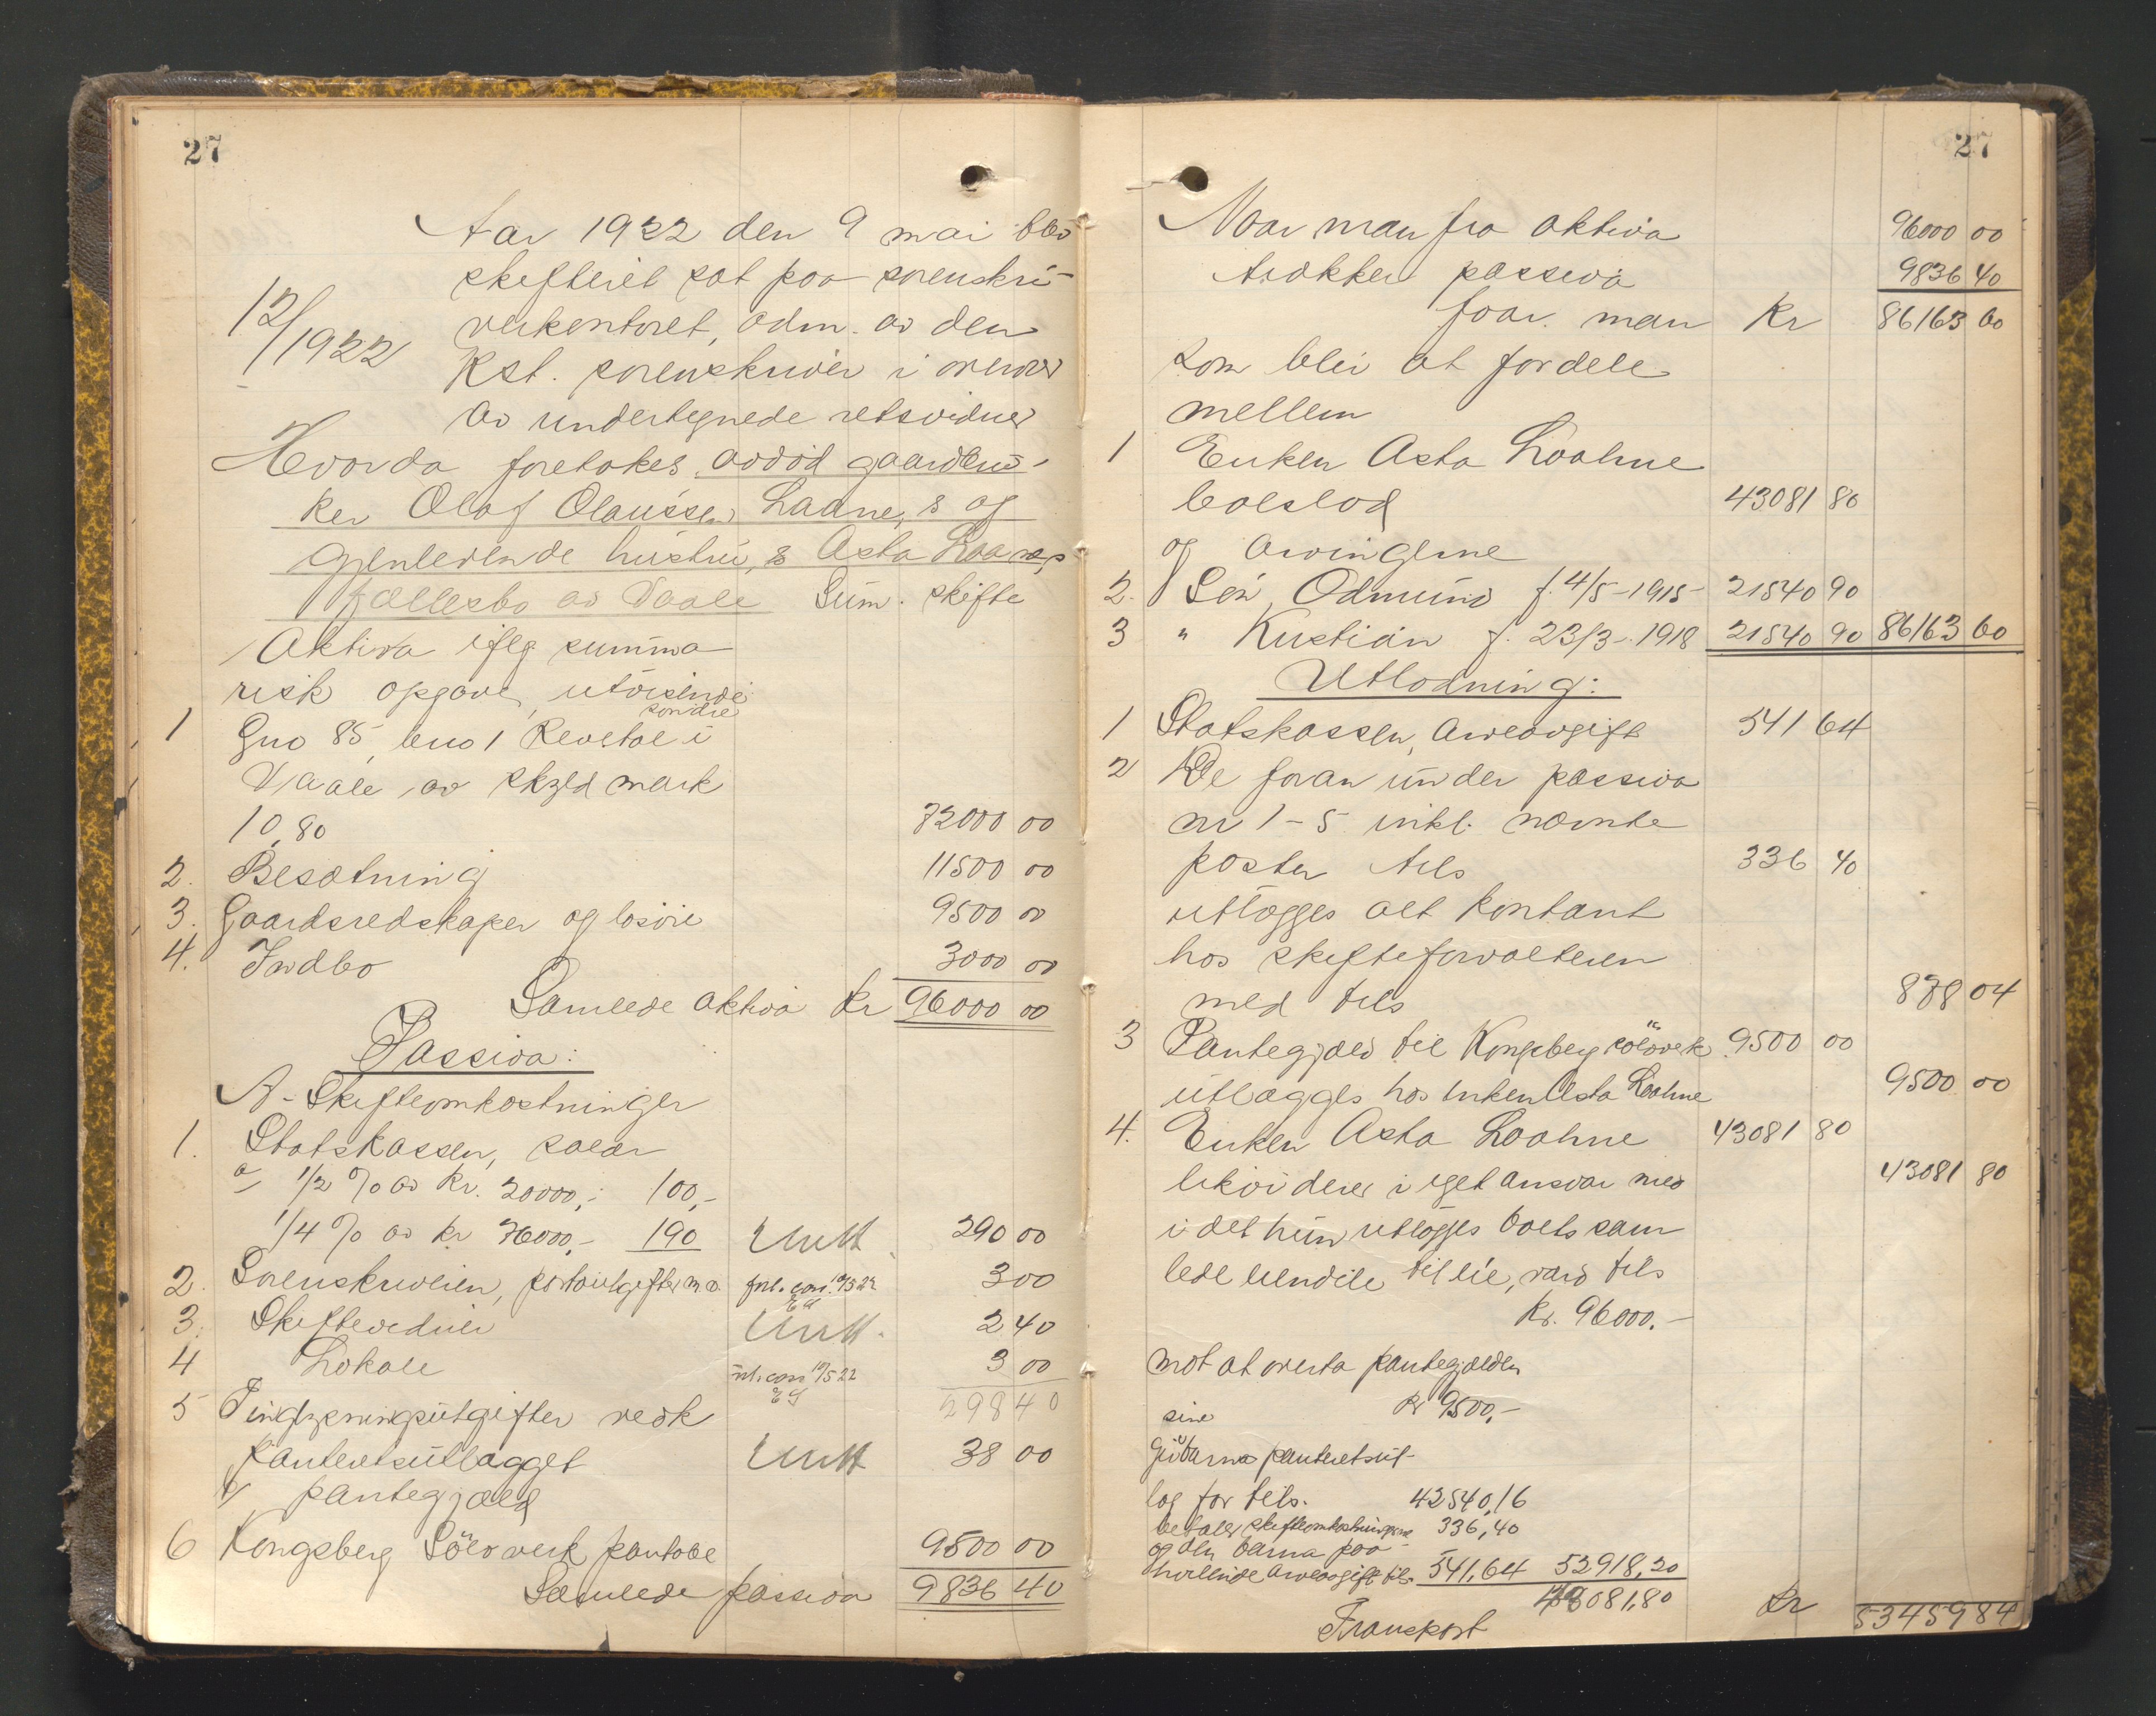 27
Aar 1922 den 9 mai blev
skifteret sat paa sorenskri-
verkontoret, adm. av den
Kst. sorenskriver i overvær
av undertegnede retsvidner
12/1922
Hvorda foretokes avdød gaardbru-
ker Olaf Olaussen Laane, s og
gjenlevende hustru, s Asta Laanes,
fællesbo av Vaale Sum. skifte
Aktiva iflg summa
risk opgave, utvisende
søndre
1 Gno 85, bno 1 Revetal i
Vaale av skyld mark
10,80 72000 00
2. Besætning 11500 00
3. Gaardsredskaper og løsøre 9500 00
4. Indbo 3000 00
Samlede aktiva Kr 96000 00
Passiva:
A - Skifteomkostninger
1. Statskassen, salær
a/ 1/2 % av Kr. 20000,- 100,-
1/4 % av Kr 76000,- 190 290 00
2. Sorenskriveren, portoutgifter m.v. 3 00
3. Skiftevidner 2 40
4 Lokale 3 00
298 40
5 Tinglysningsutgifter vedk
panteretsutlægget 38 00
b/ pantegjæld
6 Kongsberg Sölvverk pantobl 9500 00
Samlede passiva 9836 40
27
Naar man fra aktiva 96000 00
trækker passiva 9836 40
faar man Kr 86163 60
som blir at fordele
mellem
1 Enken Asta Laahne
boslod 43081 80
og arvingerne
2. Sön Odmund f. 4/5-1915 21540 90
3 " Kristian f. 23/3-1918 21540 90 86163 60
Utlodning:
1 Statskassen, arveavgift 541 64
2 De foran under passiva
nr 1-5 inkl. nævnte
poster tils 336 40
utlægges alt kontant
hos skifteforvalteren
med tils 878 04
3 Pantegjæld til Kongsberg sölvverk 9500 00
utlægges hos enken Asta Laahne 9500 00
4. Enken Asta Laahne 43081 80
likvideres i eget ansvar med 43081 80
i det hun utlægges boets sam
lede eiendele til eie, værd tils
Kr. 96000.-
mot at overta pantegjælden
Kr 9500,-
sine
Giv barna panteretsut-
læg for tils. 42540,16
betaler skifteomkostningerne 336,40
og den barna paa-
hvilende arveavgift tils. 541,64 52918,20
43081,80
Transport Kr 53459 84